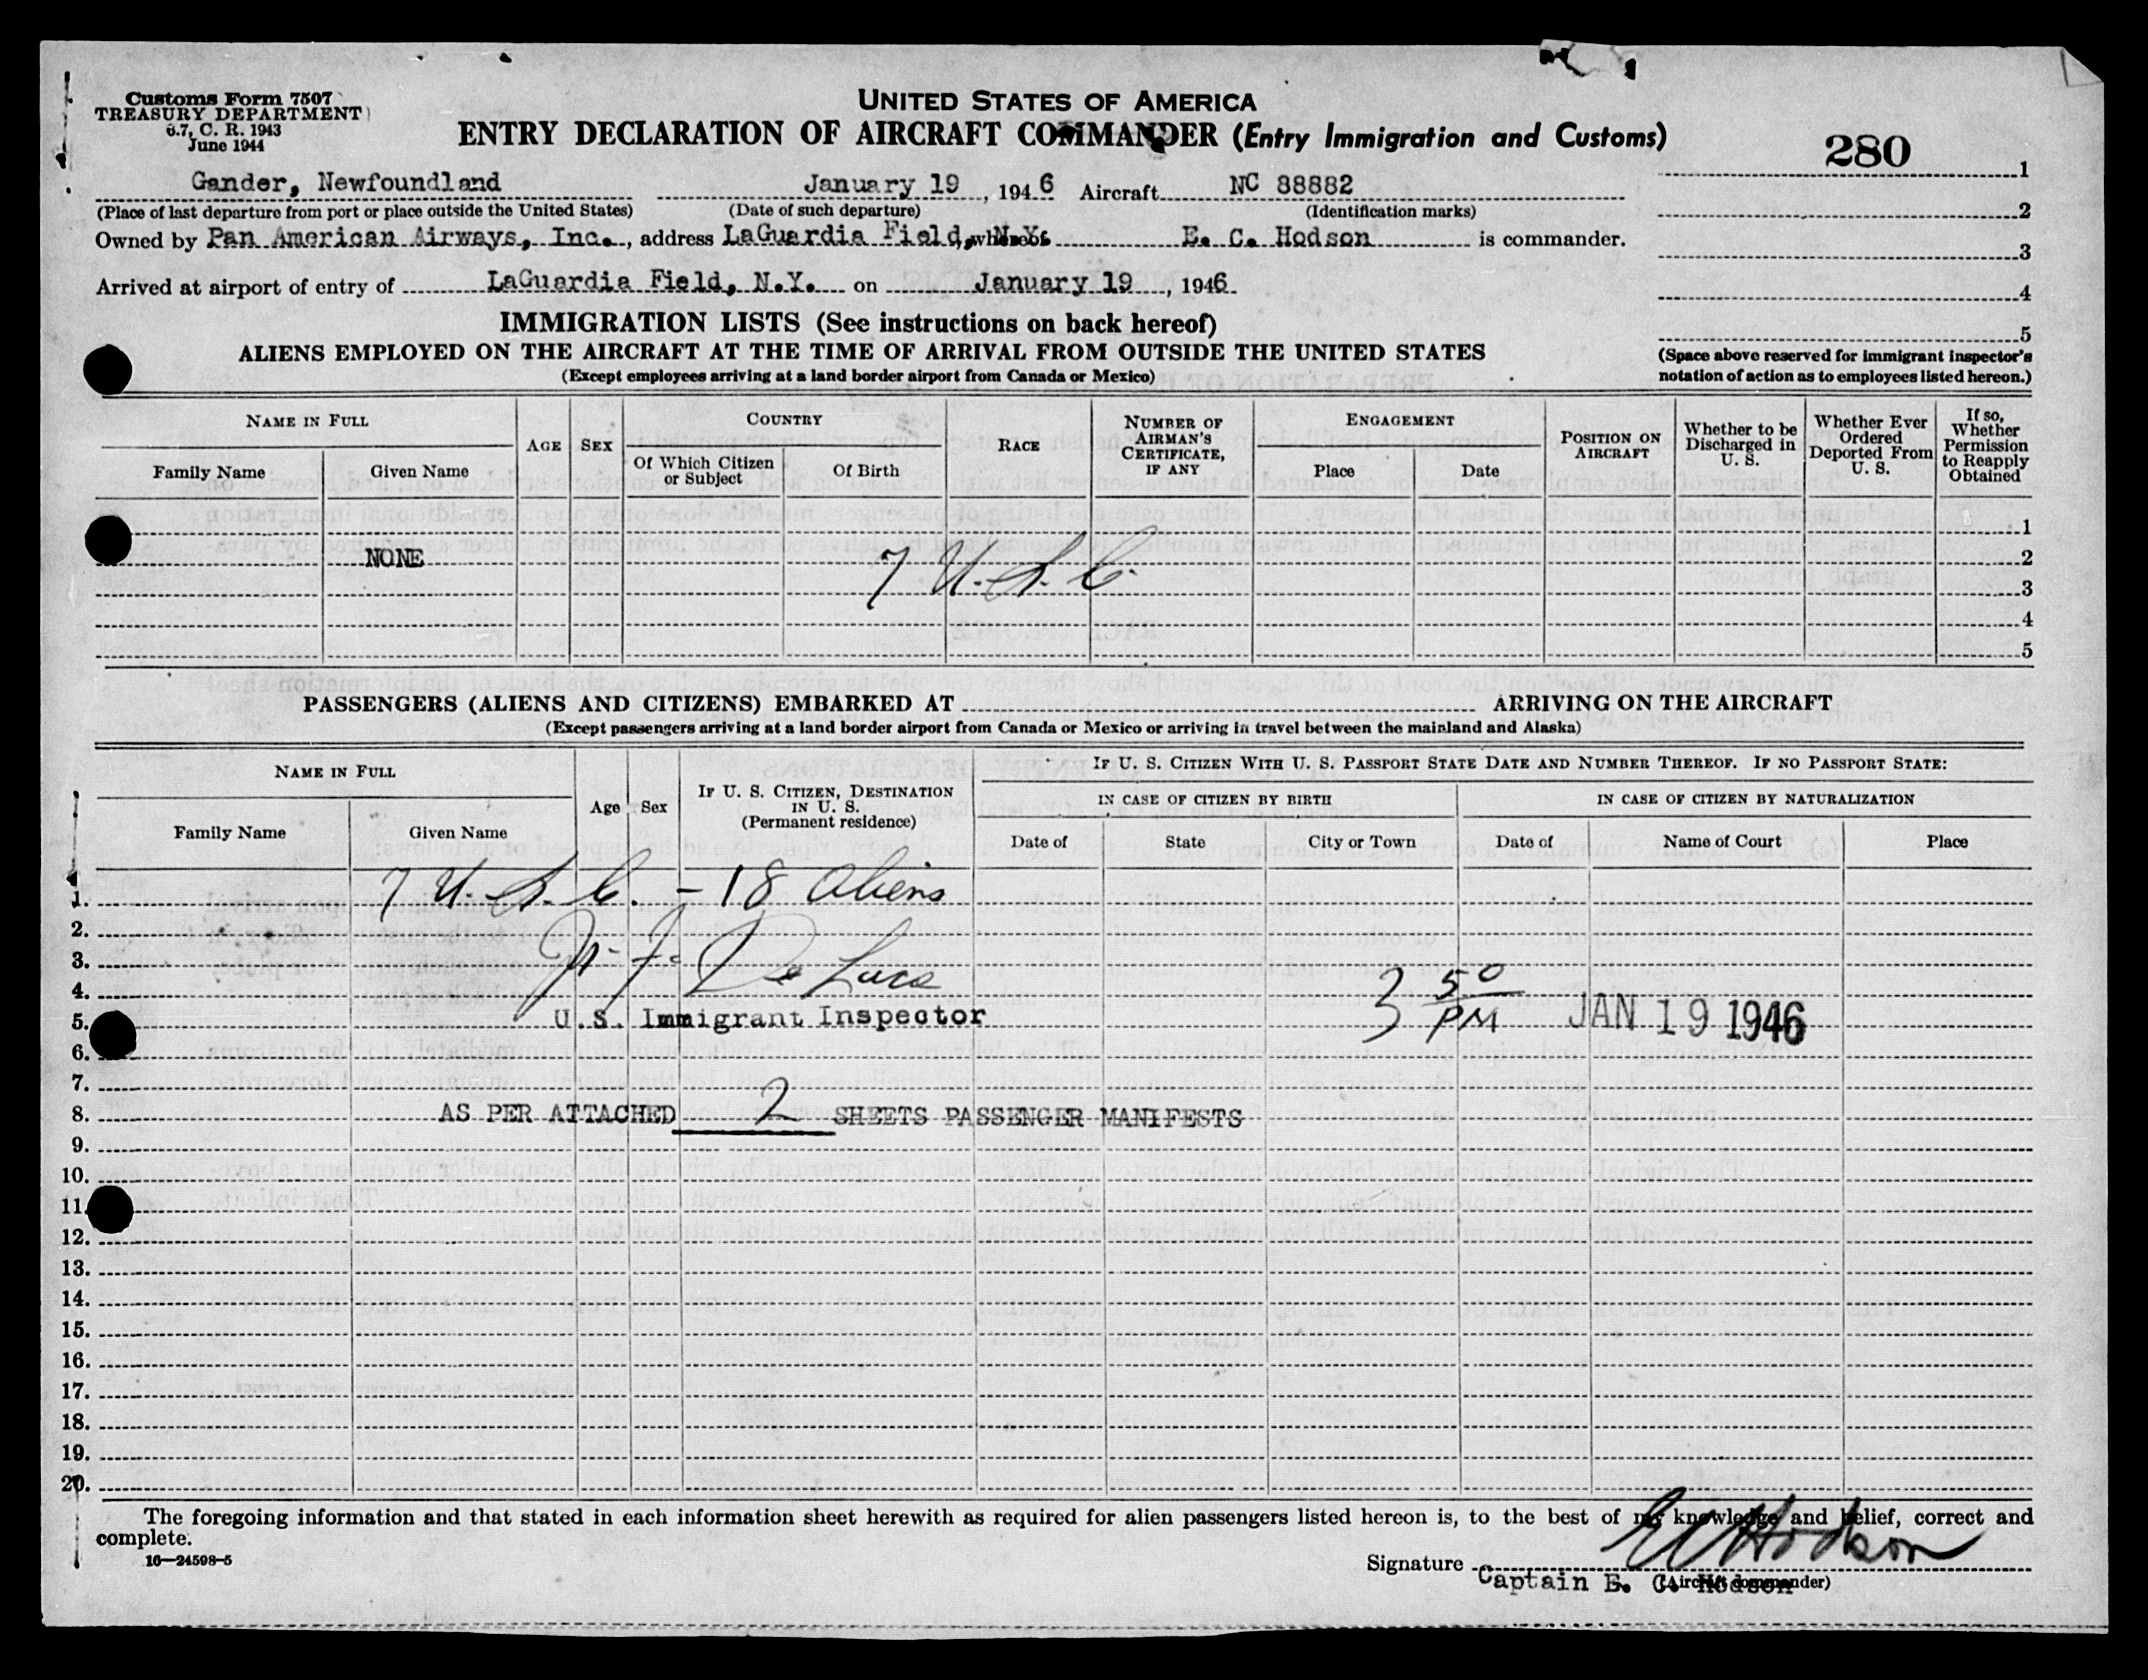 Customs Form 7507
TREASURY DEPARTMENT
6.7, C. R. 1943
June 1944
UNITED STATES OF AMERICA
ENTRY DECLARATION OF AIRCRAFT COMMANDER (Entry Immigration and Customs)
280
1
Gander, Newfoundland January 19, 1946 Aircraft NC 88882
(Place of last departure from port or place outside the United States) (Date of such departure) (Identification marks)
2
Owned by Pan American Airways, Inc., address LaGuardia Field, N.Y. whereof E. C. Hodson is commander.
3
Arrived at airport of entry of LaGuardia Field, N.Y. on January 19, 1946
4
IMMIGRATION LISTS (See instructions on back hereof)
5
ALIENS EMPLOYED ON THE AIRCRAFT AT THE TIME OF ARRIVAL FROM OUTSIDE THE UNITED STATES
(Except employees arriving at a land border airport from Canada or Mexico)
(Space above reserved for immigrant inspector's
notation of action as to employees listed hereon.)
NAME IN FULL
Family Name Given Name
AGE SEX
COUNTRY
Of Which Citizen
or Subject
Of Birth
RACE
NUMBER OF
AIRMAN'S
CERTIFICATE,
IF ANY
ENGAGEMENT
Place Date
POSITION ON
AIRCRAFT
Whether to be
Discharged in
U. S.
Whether Ever
Ordered
Deported From
U. S.
If so,
Whether
Permission
to Reapply
Obtained
1
NONE 2
7 U. S. C.
3
4
5
PASSENGERS (ALIENS AND CITIZENS) EMBARKED AT ARRIVING ON THE AIRCRAFT
(Except passengers arriving at a land border airport from Canada or Mexico or arriving in travel between the mainland and Alaska)
NAME IN FULL
Family Name Given Name
Age Sex
IF U. S. CITIZEN, DESTINATION
IN U. S.
(Permanent residence)
IF U. S. CITIZEN WITH U. S. PASSPORT STATE DATE AND NUMBER THEREOF. IF NO PASSPORT STATE:
IN CASE OF CITIZEN BY BIRTH
IN CASE OF CITIZEN BY NATURALIZATION
Date of State City or Town Date of Name of Court Place
1. 7 U. S. C. - 18 Aliens
2.
3. De Luca
4.
5. U.S. Immigrant Inspector 3 50 PM JAN 19 1946
6.
7.
8. AS PER ATTACHED 2 SHEETS PASSENGER MANIFESTS
9.
10.
11.
12.
13.
14.
15.
16.
17.
18.
19.
20.
The foregoing information and that stated in each information sheet herewith as required for alien passengers listed hereon is, to the best of my knowledge and belief, correct and
complete.
16—24598-5
Signature E C Hodson
Captain E. C. Hodson
(Aircraft commander)